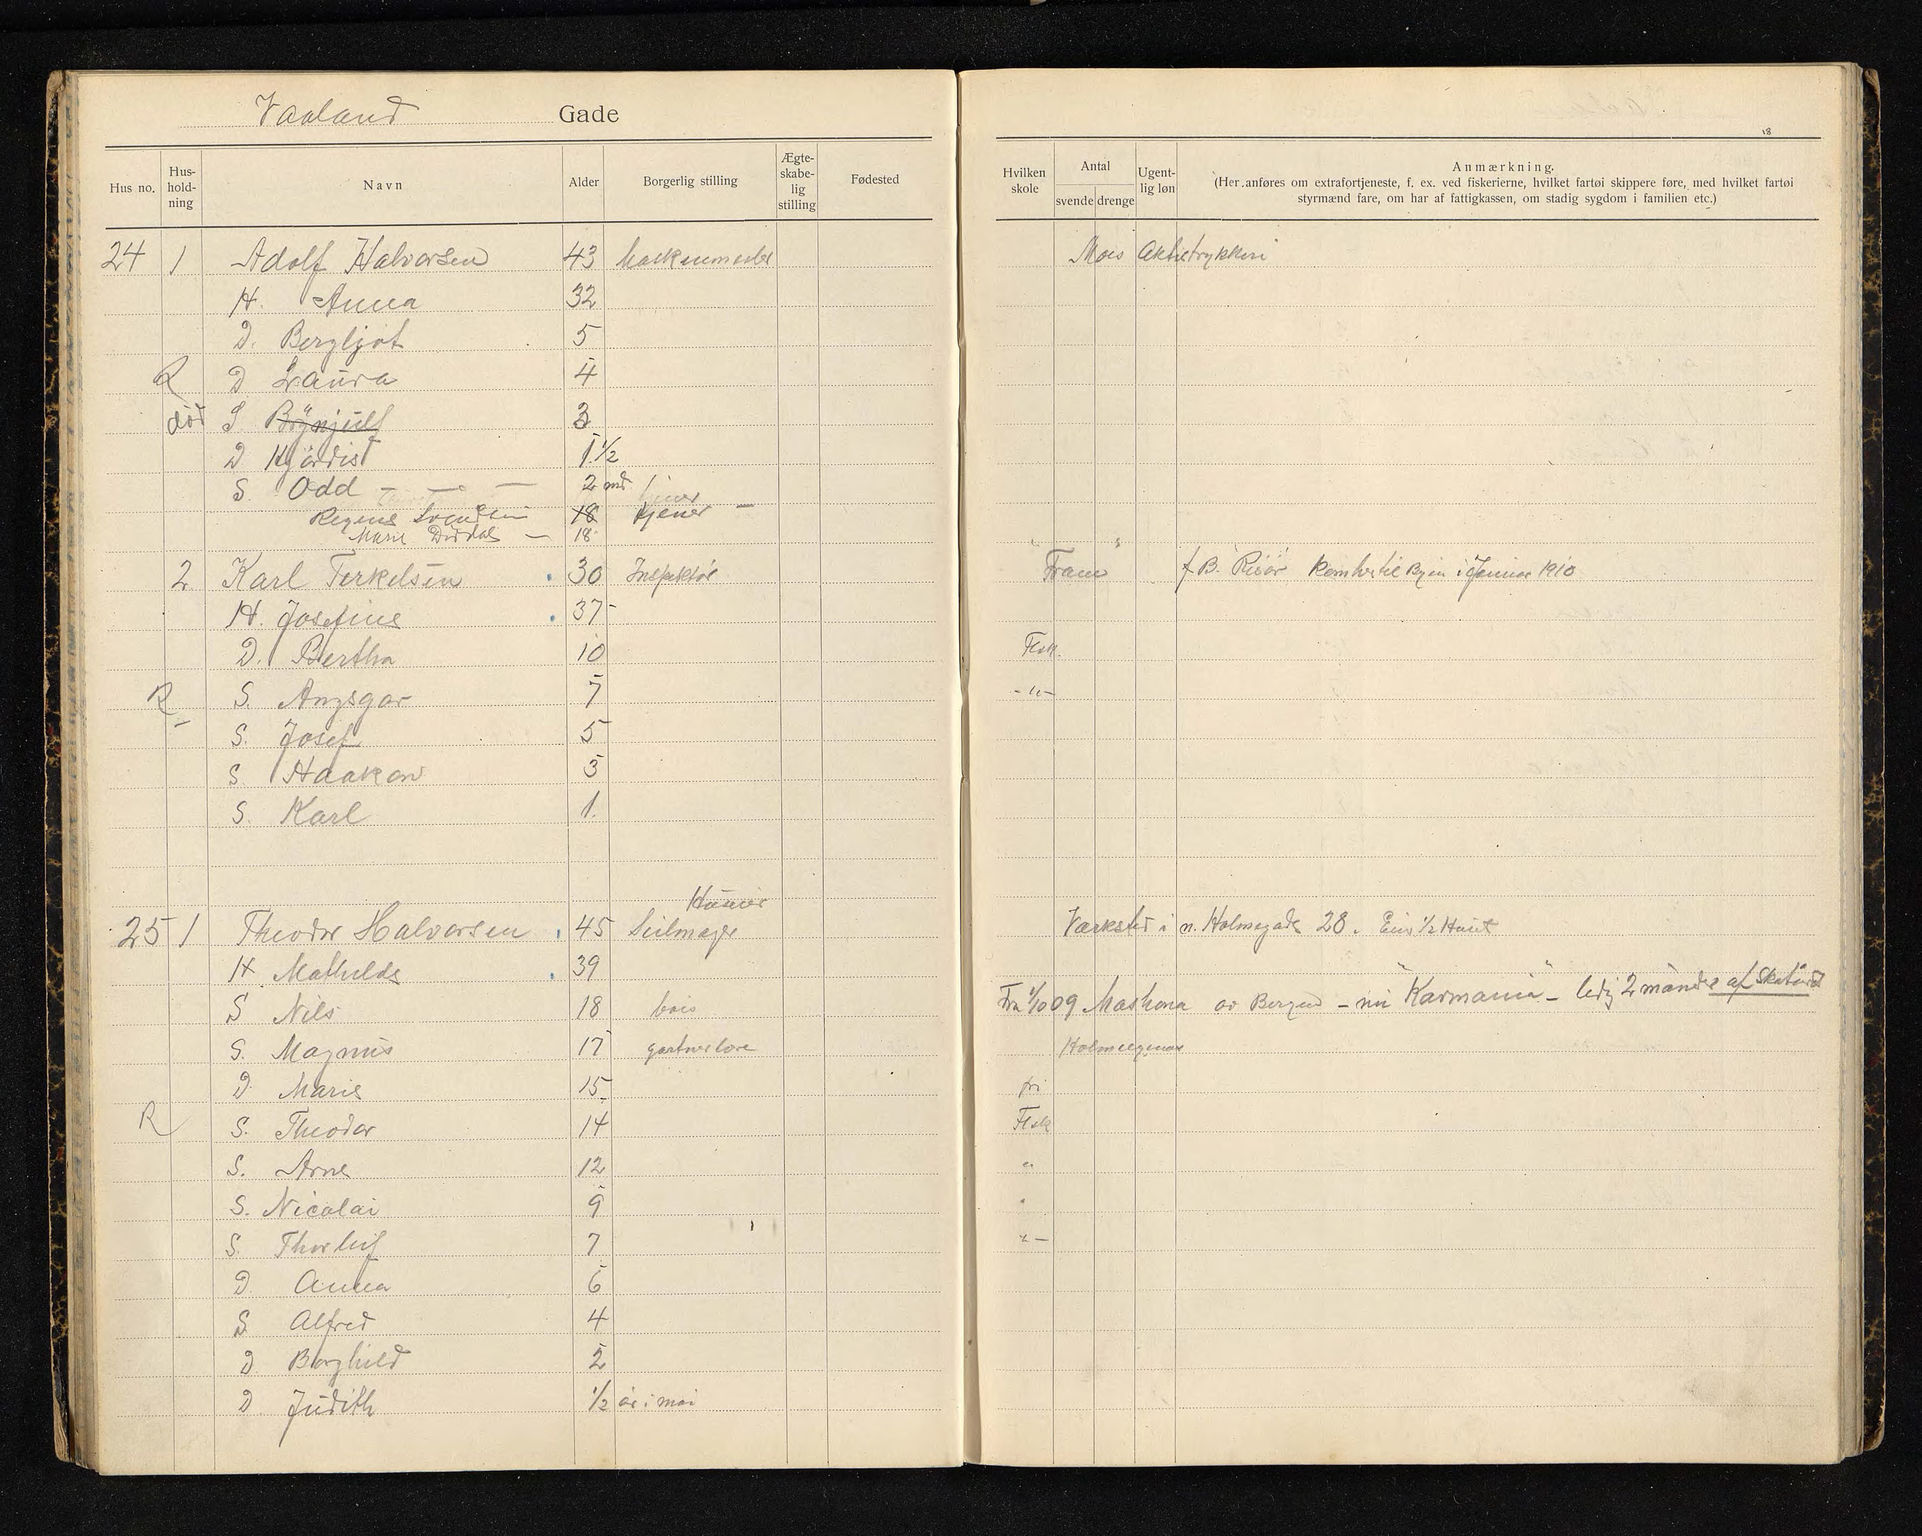 Vaaland Gade
Hus no. Hus-hold-ning Navn Alder Borgerlig stilling Ægte-skabe-lig stilling Fødested Hvilken skole Antal svende drenge Ugent-lig løn Anmærkning.
(Her anføres om extrafortjeneste, f. ex. ved fiskerierne, hvilket fartøi skippere føre, med hvilket fartøi
styrmænd fare, om har af fattigkassen, om stadig sygdom i familien etc.)
24 1 Adolf Halvorsen 43 Maskinmester Moes Aktietrykkeri
H. Anna 32
D. Bergljot 5
R D Laura 4
død S Brynjulf 3
D Hjördis 1 1/2
S. Odd — — — 2 md
Regine Svendsen 18 tjener —
Marie Dirdal — 18
2 Karl Terkelsen 30 Inspektör "Fram" f B. Risör kom her til Byen i Januar 1910
H. Josefine 37
D. Bertha 10 Fisk.
R S. Ansgar 7 - " -
S. Josef 5
S. Haakon 3
S. Karl 1
25 1 Theodor Halvorsen 45 Seilmager Værksted i n. Holmegade 28. Eier 1/2 Huset
H. Mathilde 39
S Nils 18 Fra 1/10 09 Mashona av Bergen - nu "Karmania" - ledig 2 måneder af
S. Magnus 17 Holmeegenes
D Marie 15 fri
R S. Theodor 14 Fisk
S. Arne 12 "
S. Nicolai 9 "
S. Thorleif 7 " -
D. Anna 6
S Alfred 4
D Borghild 2
D Judith 1/2 år i mai